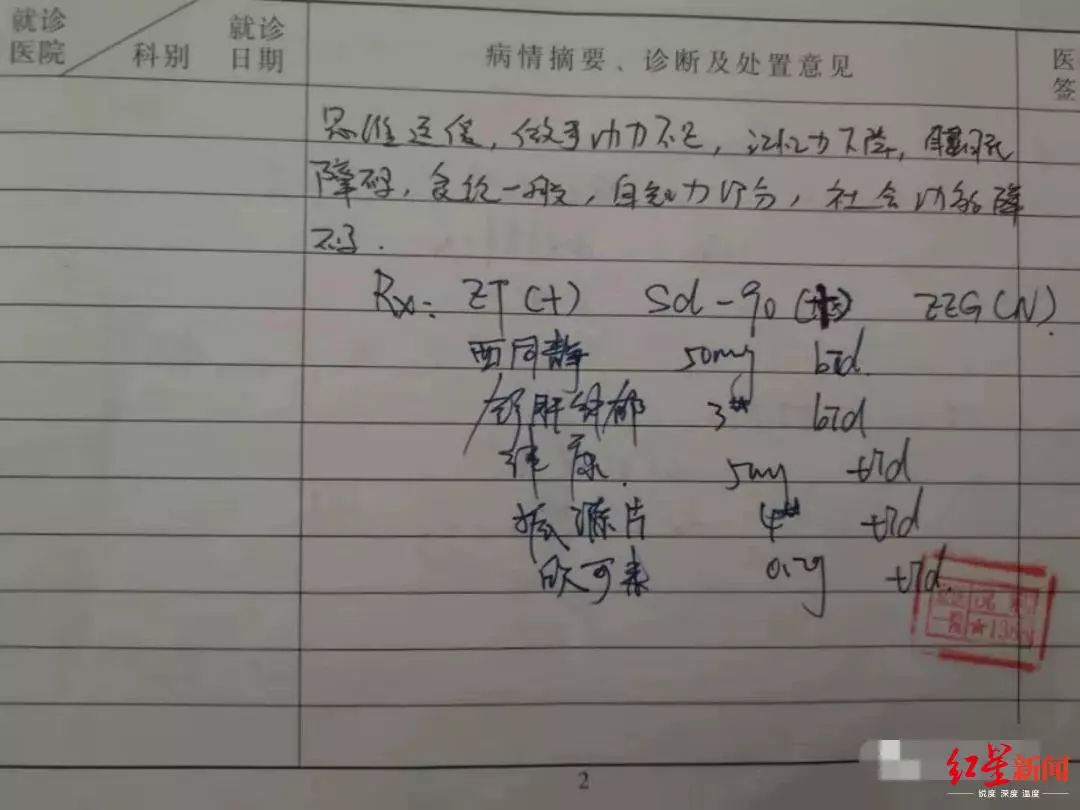 就诊医院 科别 就诊日期 病情摘要、诊断及处置意见 医签
思维迟缓,做事动力不足,记忆力下降,睡眠
障碍,食纶一般,自知力部分,社会功能障
碍.
Rx: ZT(+) Scl-90(+) ZZG(N)
西同静 50mg bid.
舒肝解郁 3# bid
律康. 5mg tid
片 4# tid
欣可来 0.2g tid.
2
红星新闻
锐度 深度 温度